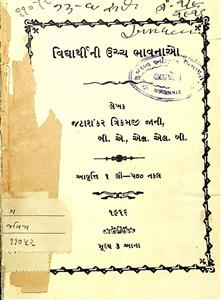 વિદ્યાર્થીની ઉચ્ચ ભાવનાઓ
લેખક
જટાશંકર ત્રિકમજી જાની,
બી. એ, એલ. એલ. બી.
આવૃત્તિ ૧ લી-૫૦૦ નકલ
૧૯૧૬
મૂલ્ય ૩ આના
૧૧૦૫૨